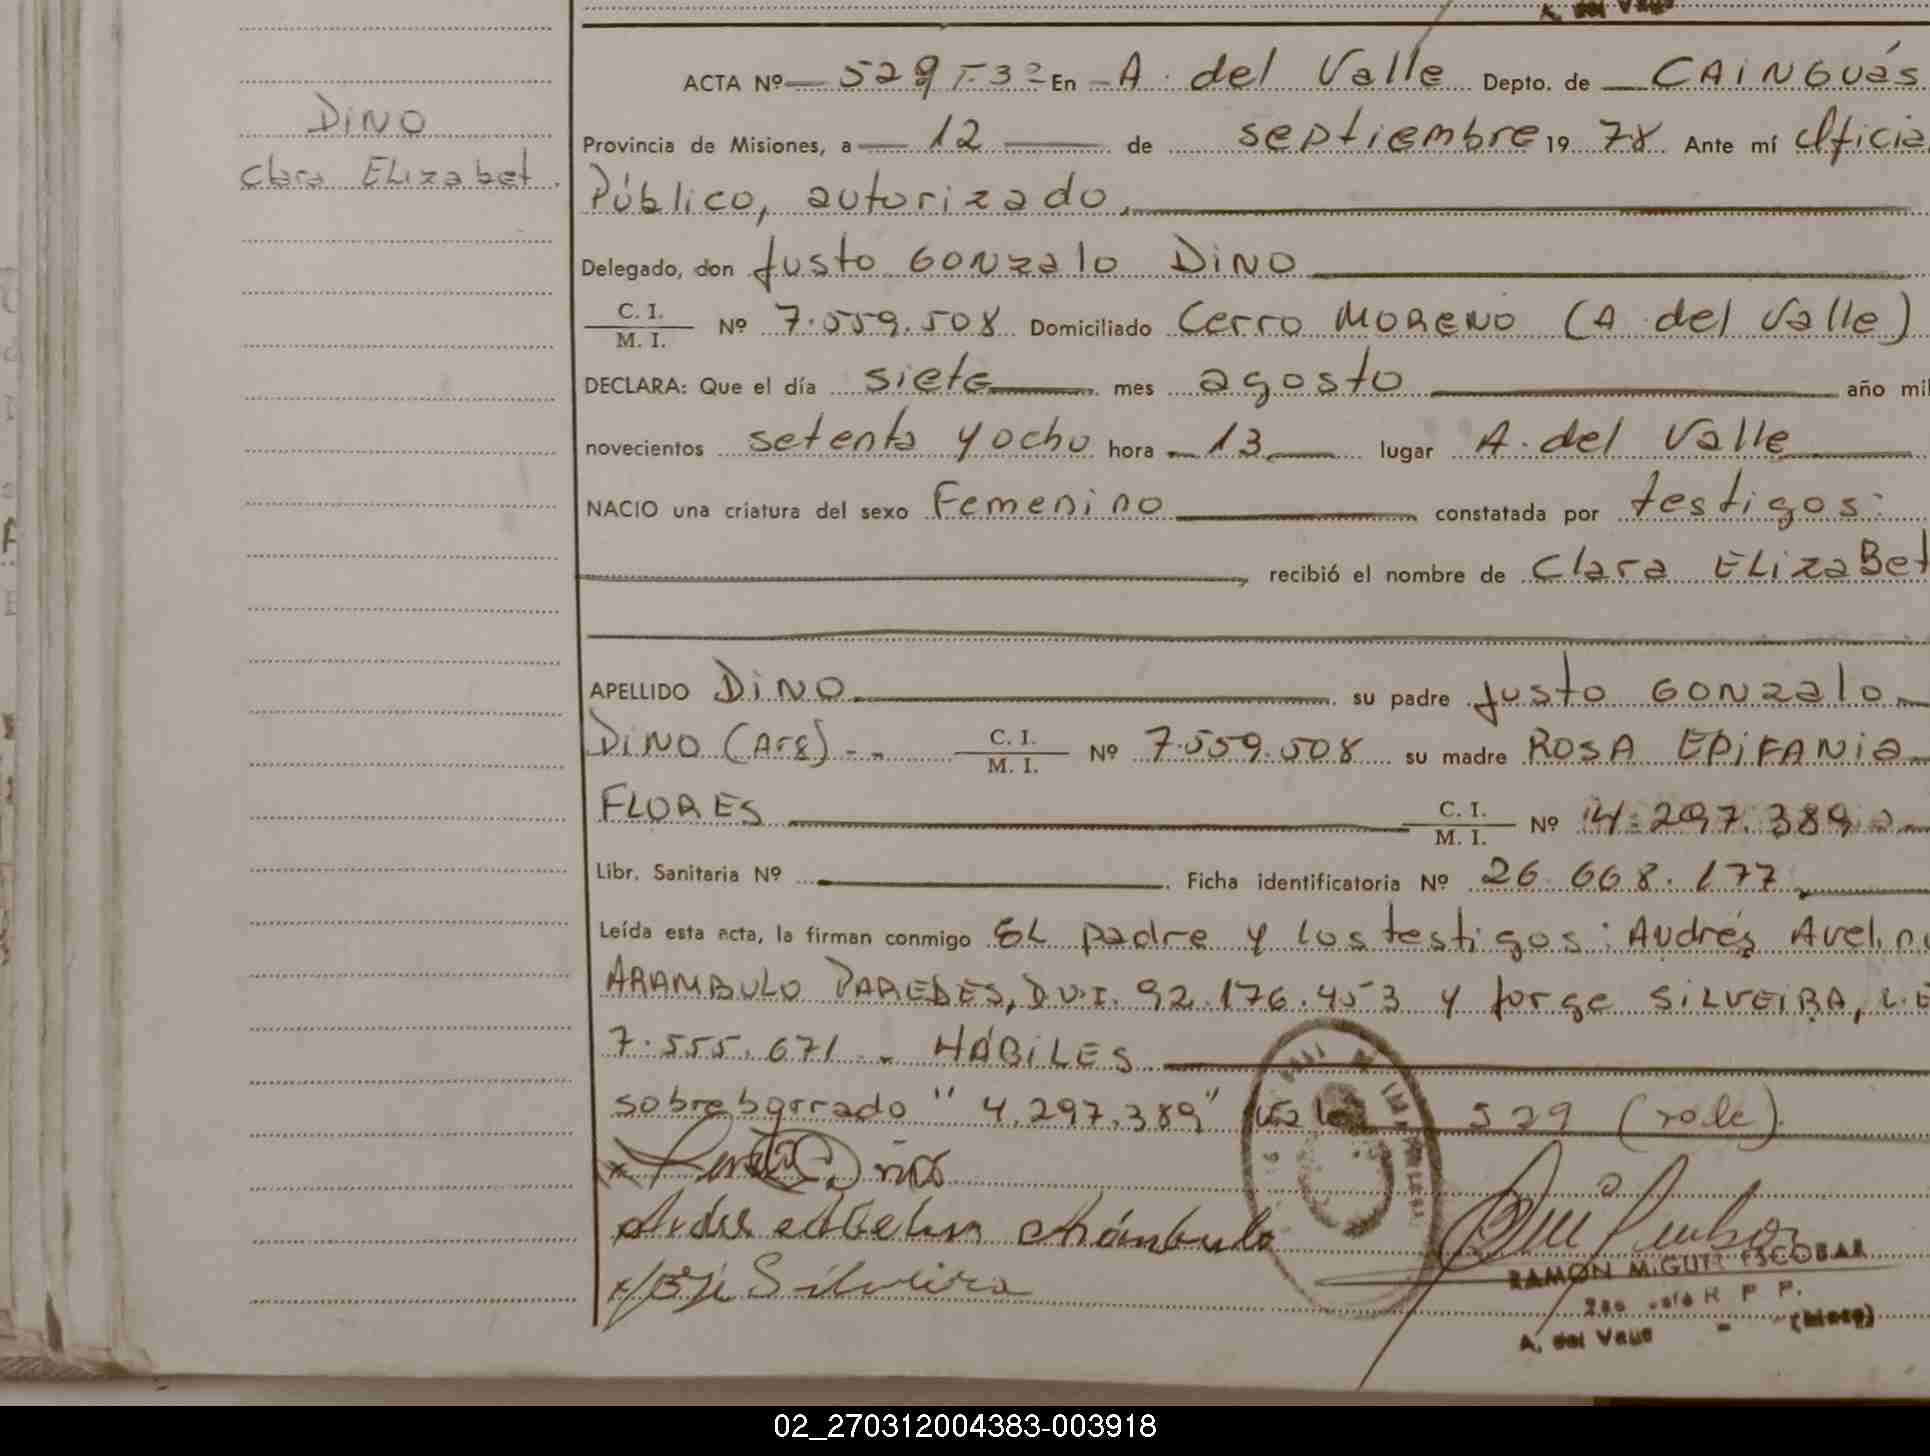 A. del Valle
ACTA Nº 529 T-3º En A. del Valle Depto. de CAINGUÁS
DINO
Provincia de Misiones, a 12 de septiembre 19 78 Ante mí Oficial
Clara Elizabet.
Público, autorizado,
Delegado, don Justo GONzalo DiNO
C. I.
M. I. Nº 7.559.508 Domiciliado Cerro MORENO (A. del Valle)
DECLARA: Que el día siete mes agosto año mil
novecientos setenta y ocho hora 13 lugar A. del Valle
NACIO una criatura del sexo Femenino constatada por testigos:
recibió el nombre de Clara ELizaBet
APELLIDO DiNO su padre Justo GONzalo
DiNO (Arg) C. I. M. I. Nº 7.559.508 su madre ROSA EPiFANia
FLORES C. I. M. I. Nº 4.297.389
Libr. Sanitaria Nº Ficha identificatoria Nº 26.668.177
Leída esta acta, la firman conmigo EL padre y los testigos: Andrés Avelino
ARAMBULO PAREDES, D.N.I. 92.176.453 y Jorge SiLVEiRA, L.E
7.555.671 - HÁBiLES
sobreborrado "4.297.389" vale 529 (vale).
Andres Avelin Arámbulo
Silveira
RAMON MIGUEL ESCOBAR
R P P.
A. del Valle - (Mnes)
02_270312004383-003918